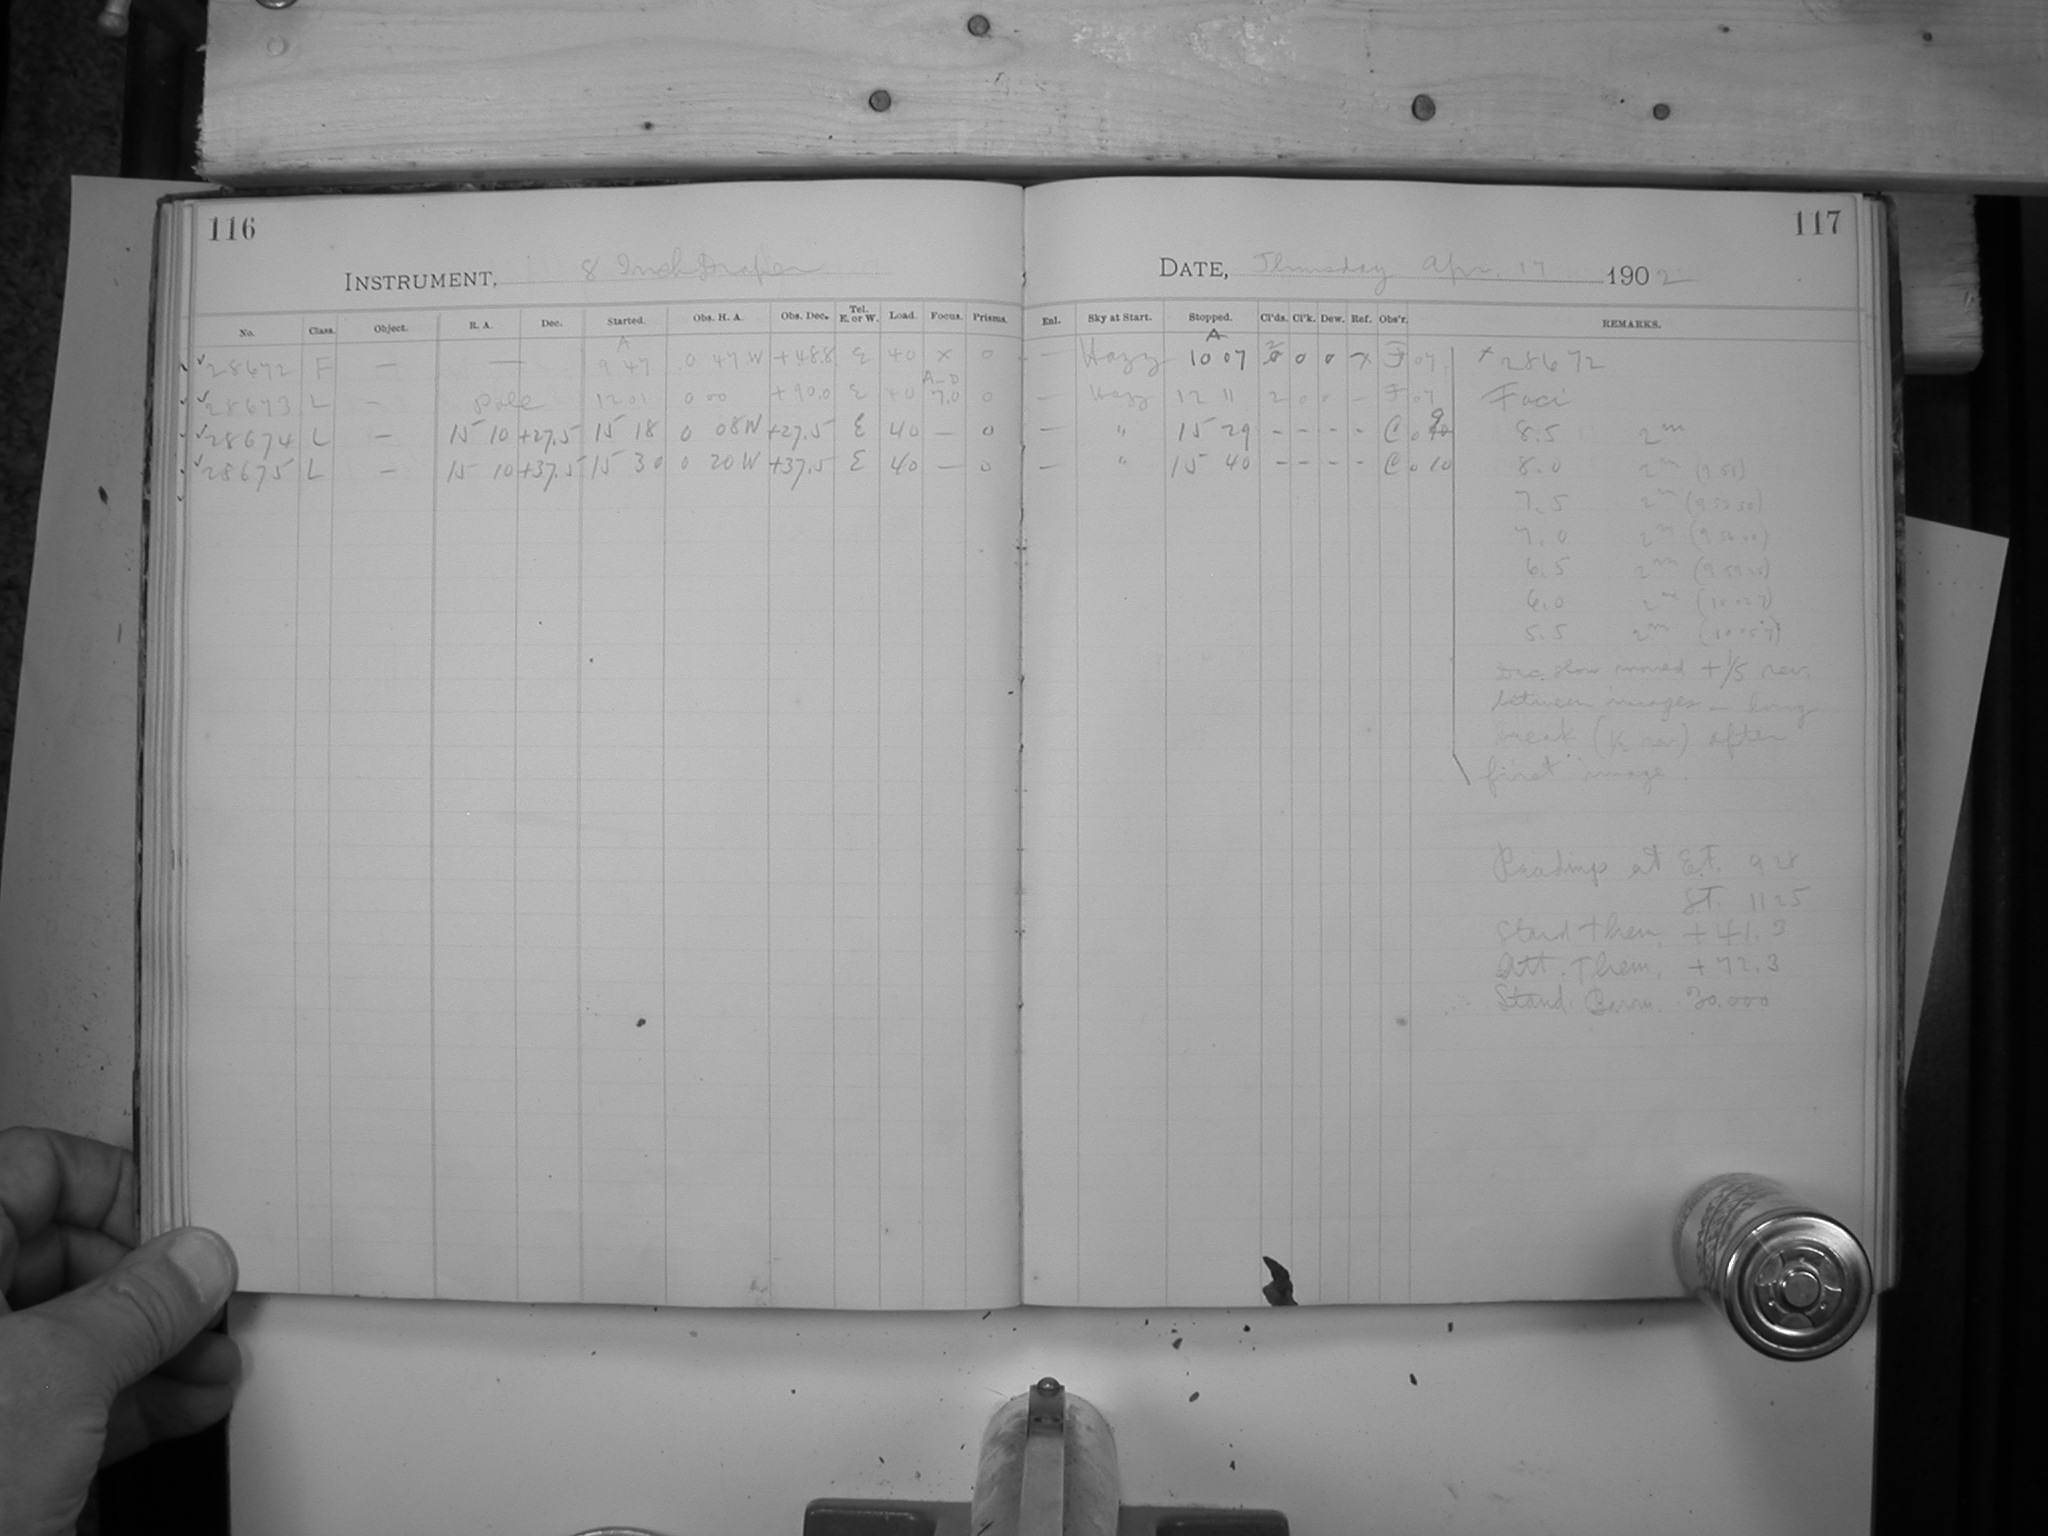 116
INSTRUMENT, 8 Inch Draper
No. Class. Object. R. A. Dec. Started. Obs. H. A. Obs. Dec. Tel. E. or W. Load. Focus. Prisms.
28672 F — — A 9 47 0 47 W +48.8 E 40 × 0
28673 L — Pole 12 01 0 00 +90.0 E 40 A-D 7.0 0
28674 L — 15 10 +27.5 15 18 0 08 W +27.5 E 40 — 0
28675 L — 15 10 +37.5 15 30 0 20 W +37.5 E 40 — 0
117
DATE, Thursday Apr. 17 1902
Enl. Sky at Start. Stopped. Cl'ds. Cl'k. Dew. Ref. Obs'r. REMARKS.
— Hazy A 10 07 2 0 0 × F 07
— Hazy 12 11 2 0 0 – F 07
— " 15 29 - - - - C 0 9
— " 15 40 - - - - C 0 10
× 28672
Foci
8.5 2m
8.0 2m (9 51)
7.5 2m
7.0 2m
6.5 2m
6.0 2m
5.5 2m
Dec. slow moved + 1/5 rev.
between images – long
break (½ rev) after
first image.
Readings at E.T. 9 28
S.T. 11 25
Stand Them. +41.3
Att. Them. +72.3
Stand. Barom. 30.000